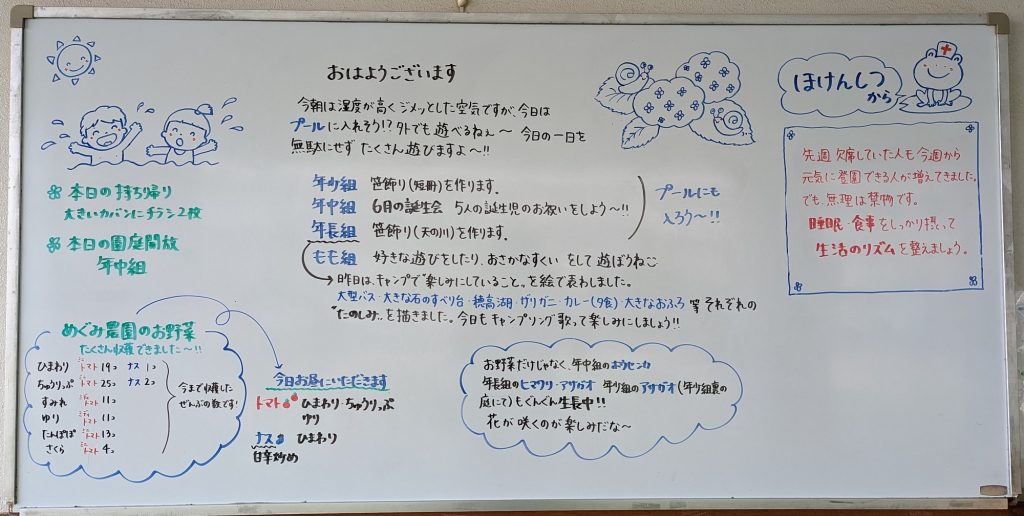 おはようございます
今朝は湿度が高くジメッとした空気ですが、今日は
プールに入れそう!?外でも遊べるねぇ〜 今日の一日を
無駄にせず たくさん遊びますよ〜!!
年少組 笹飾り(短冊)を作ります。
年中組 6月の誕生会 5人の誕生児のお祝いをしよう〜!!
年長組 笹飾り(天の川)を作ります。
プールにも
入ろう〜!!
もも組 好きな遊びをしたり、おさかなすくい をして 遊ぼうねっ
昨日は、キャンプで"楽しみにしていること"を絵で表わしました。
大型バス・大きな石のすべり台・穂高湖・ザリガニ・カレー(夕食)・大きなおふろ 等 それぞれの
"たのしみ"を描きました。今日もキャンプソング歌って楽しみにしましょう!!
本日の持ち帰り
大きいカバンにチラシ2枚
本日の園庭開放
年中組
めぐみ農園のお野菜
たくさん収穫できました〜!!
ひまわり ミニトマト19コ ナス1コ
ちゅうりっぷ ミニトマト25コ ナス2コ
すみれ ミニトマト11コ
ゆり ミニトマト11コ
たんぽぽ ミニトマト13コ
さくら ミニトマト4コ
今まで収穫した
ぜんぶの数です!
今日お昼にいただきます
トマト ひまわり・ちゅうりっぷ
ゆり
ナス ひまわり
甘辛炒め
お野菜だけじゃなく、年中組のホウセンカ
年長組のヒマワリ・アサガオ 年少組のアサガオ(年少組裏の
庭にて)もぐんぐん生長中!!
花が咲くのが楽しみだな〜
ほけんしつ
から
先週 欠席していた人も今週から
元気に登園できる人が増えてきました。
でも、無理は禁物です。
睡眠・食事をしっかり摂って
生活のリズムを整えましょう。